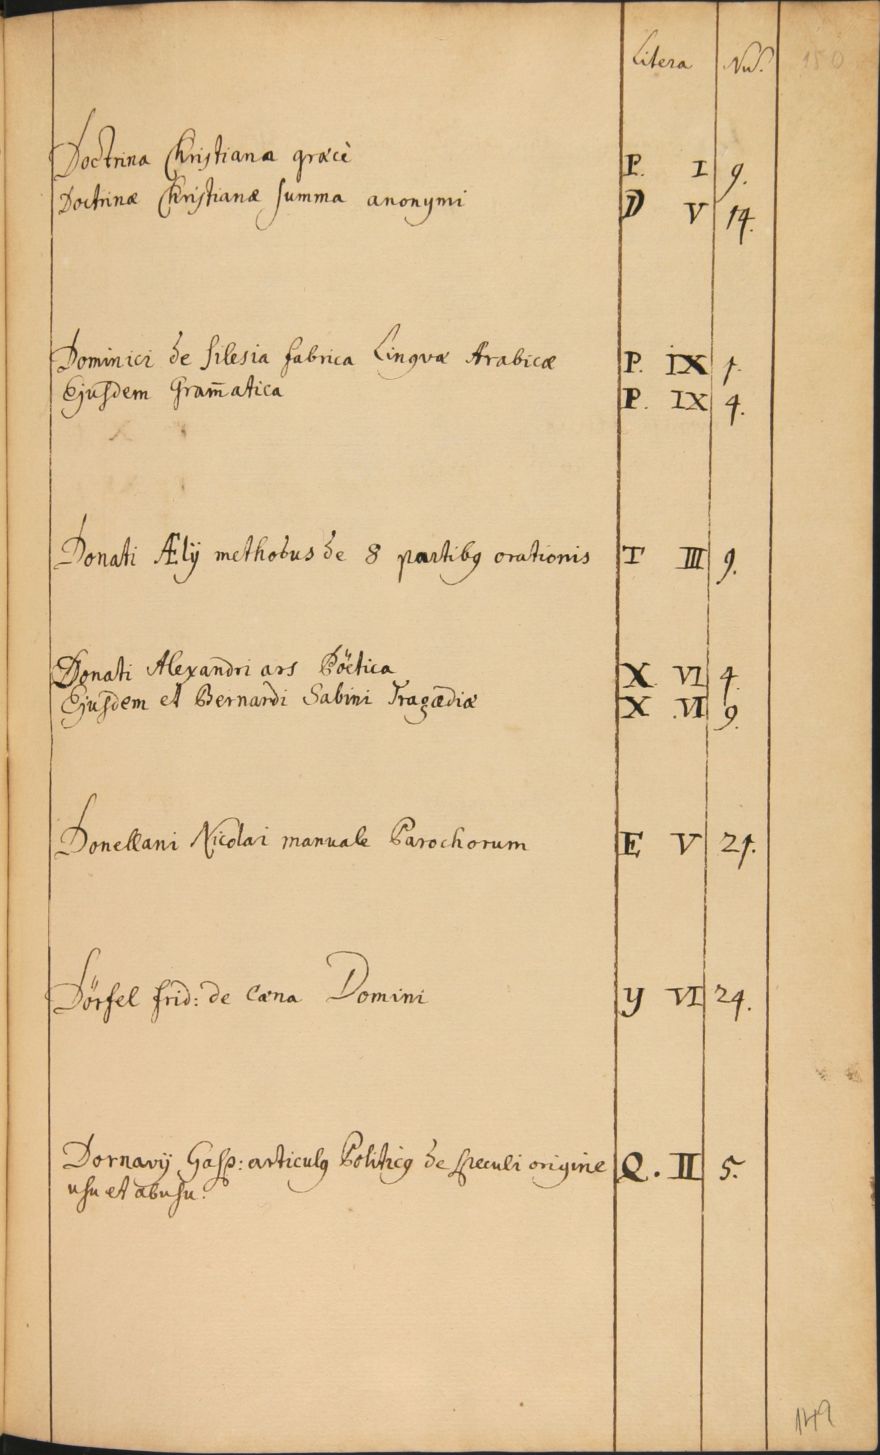 Litera Nu.
150
Doctrina Christiana græcè P. I 9.
Doctrinæ Christianæ summa anonymi D V 14.
Dominici de Silesia fabrica Linguæ Arabicæ P. IX 1.
Ejusdem Gram̄atica P. IX 4.
Donati Ælÿ methodus de 8 partibꝯ orationis T III 9.
Donati Alexandri ars Pöetica X VI 4.
Ejusdem et Bernardi Sabini Tragædiæ X VI 9.
Donellani Nicolai manuale Parochorum E V 21.
Dörfel frid: de Cæna Domini Y VI 24.
Dornavÿ Gasp: articulꝯ Politicꝯ de speculi origine Q. II 5.
usu et abusu.
149